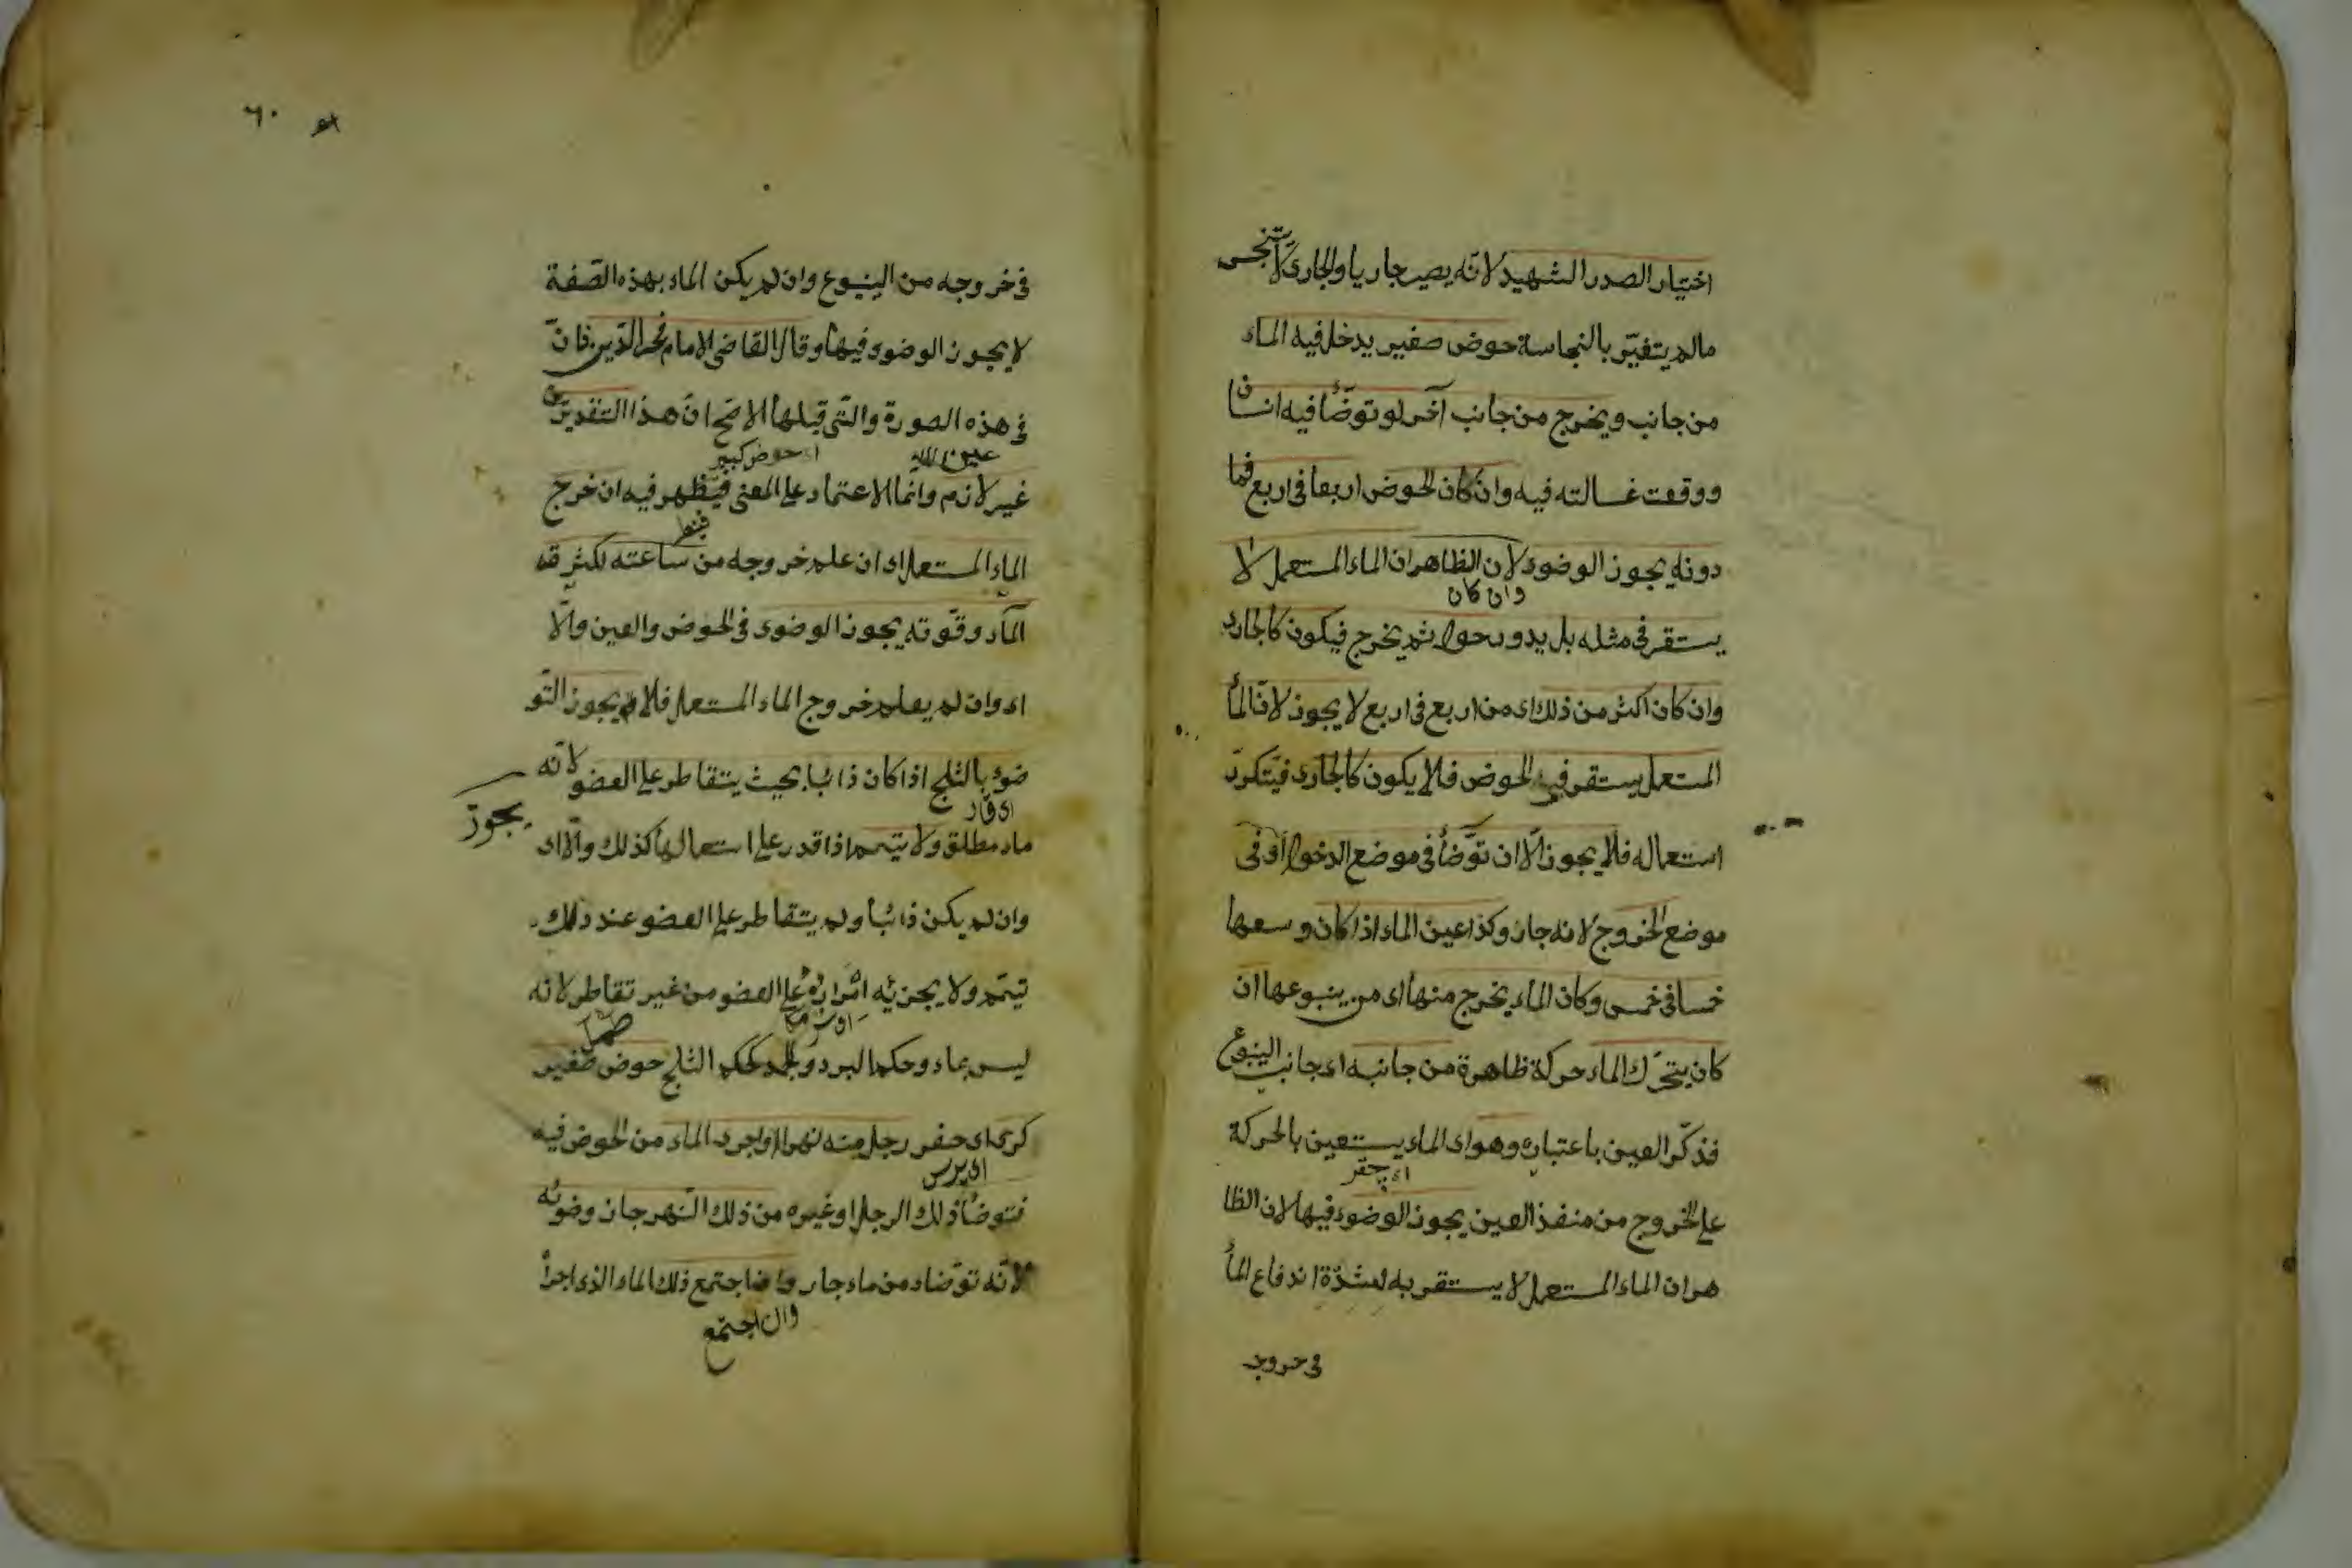 اختيار الصدر الشهيد لانّه يصير جاريا والجارى لا يتنجس
مالم يتغيّر بالنجاسة حوض صغير يدخل فيه الماء
من جانب ويخرج من جانب آخر لو توضّأ فيه انسان
ووقعت غسالته فيه وان كان الحوض اربعا فى اربع فما
دونه يجوز الوضوء لان الظاهر ان الماء المستعمل لا
وان كان
يستقر فى مثله بل يدور حوله ثم يخرج فيكون كالجارى
وان كان اكثر من ذلك اى من اربع فى اربع لا يجوز لانّ الماء
المستعمل يستقر فى الحوض فلا يكون كالجارى فيتكرّر
استعماله فلا يجوز الّا ان توّضأ فى موضع الدخول او فى
موضع الخروج لانه جاز وكذا عين الماء اذا كان وسعها
خمسا فى خمس وكان الماء يخرج منها اى من ينبوعها ان
كان يتحرّك الماء حركة ظاهرة من جانبه اى جانب الينبوع
فذكّر العين باعتباره وهو اى الماء يستعين بالحركة
اى چقر
على الخروج من منفذ العين يجوز الوضوء فيها لان الظا
هر ان الماء المستعمل لا يستقر به لشدّة اندفاع الماء
فى خروجه
٦٠
فى خروجه من الينبوع وان لم يكن الماء بهذه الصّفة
لا يجوز الوضوء فيها وقال القاضى الامام فخر الدّين خان
فى هذه الصورة والتّى قبلها الاصّح ان هذا التقدير
اى حوض كبير
غير لازم وانما الاعتماد على المعنى فينظر فيه ان خرج
فينظر
الماء المستعمل اى ان علم خروجه من ساعته لكثرة
المآء وقوّته يجوز الوضوء فى الحوض والعين والّا
اى وان لم يعلم خروج الماء المستعمل فلا يجوز التّو
ضوء بالثلج اذا كان ذائبا بحيث يتقاطر على العضو لانّه
يجوز
اى قار
ماء مطلق ولا يتيمم اذا قدر على استعمالها كذلك والّا اى
وان لم يكن ذائبا ولم يتقاطر على العضو عند ذلك
تيمّم ولا يجزئه امراره على العضو من غير تقاطر لانه
ليس بماء وحكم البرد والجمد كحكم الثلج حوض صغير
كرى اى حفر رجل منه نهرا واجرى الماء من الحوض فيه
فتوضأ ذلك الرجل او غيره من ذلك النّهر جاز وضوئه
لانّه توّضاء من ماء جار وان اجتمع ذلك الماء الذى اجراه
وان اجتمع